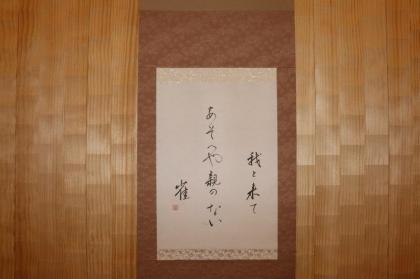 我と来て
あそべや親のない
雀